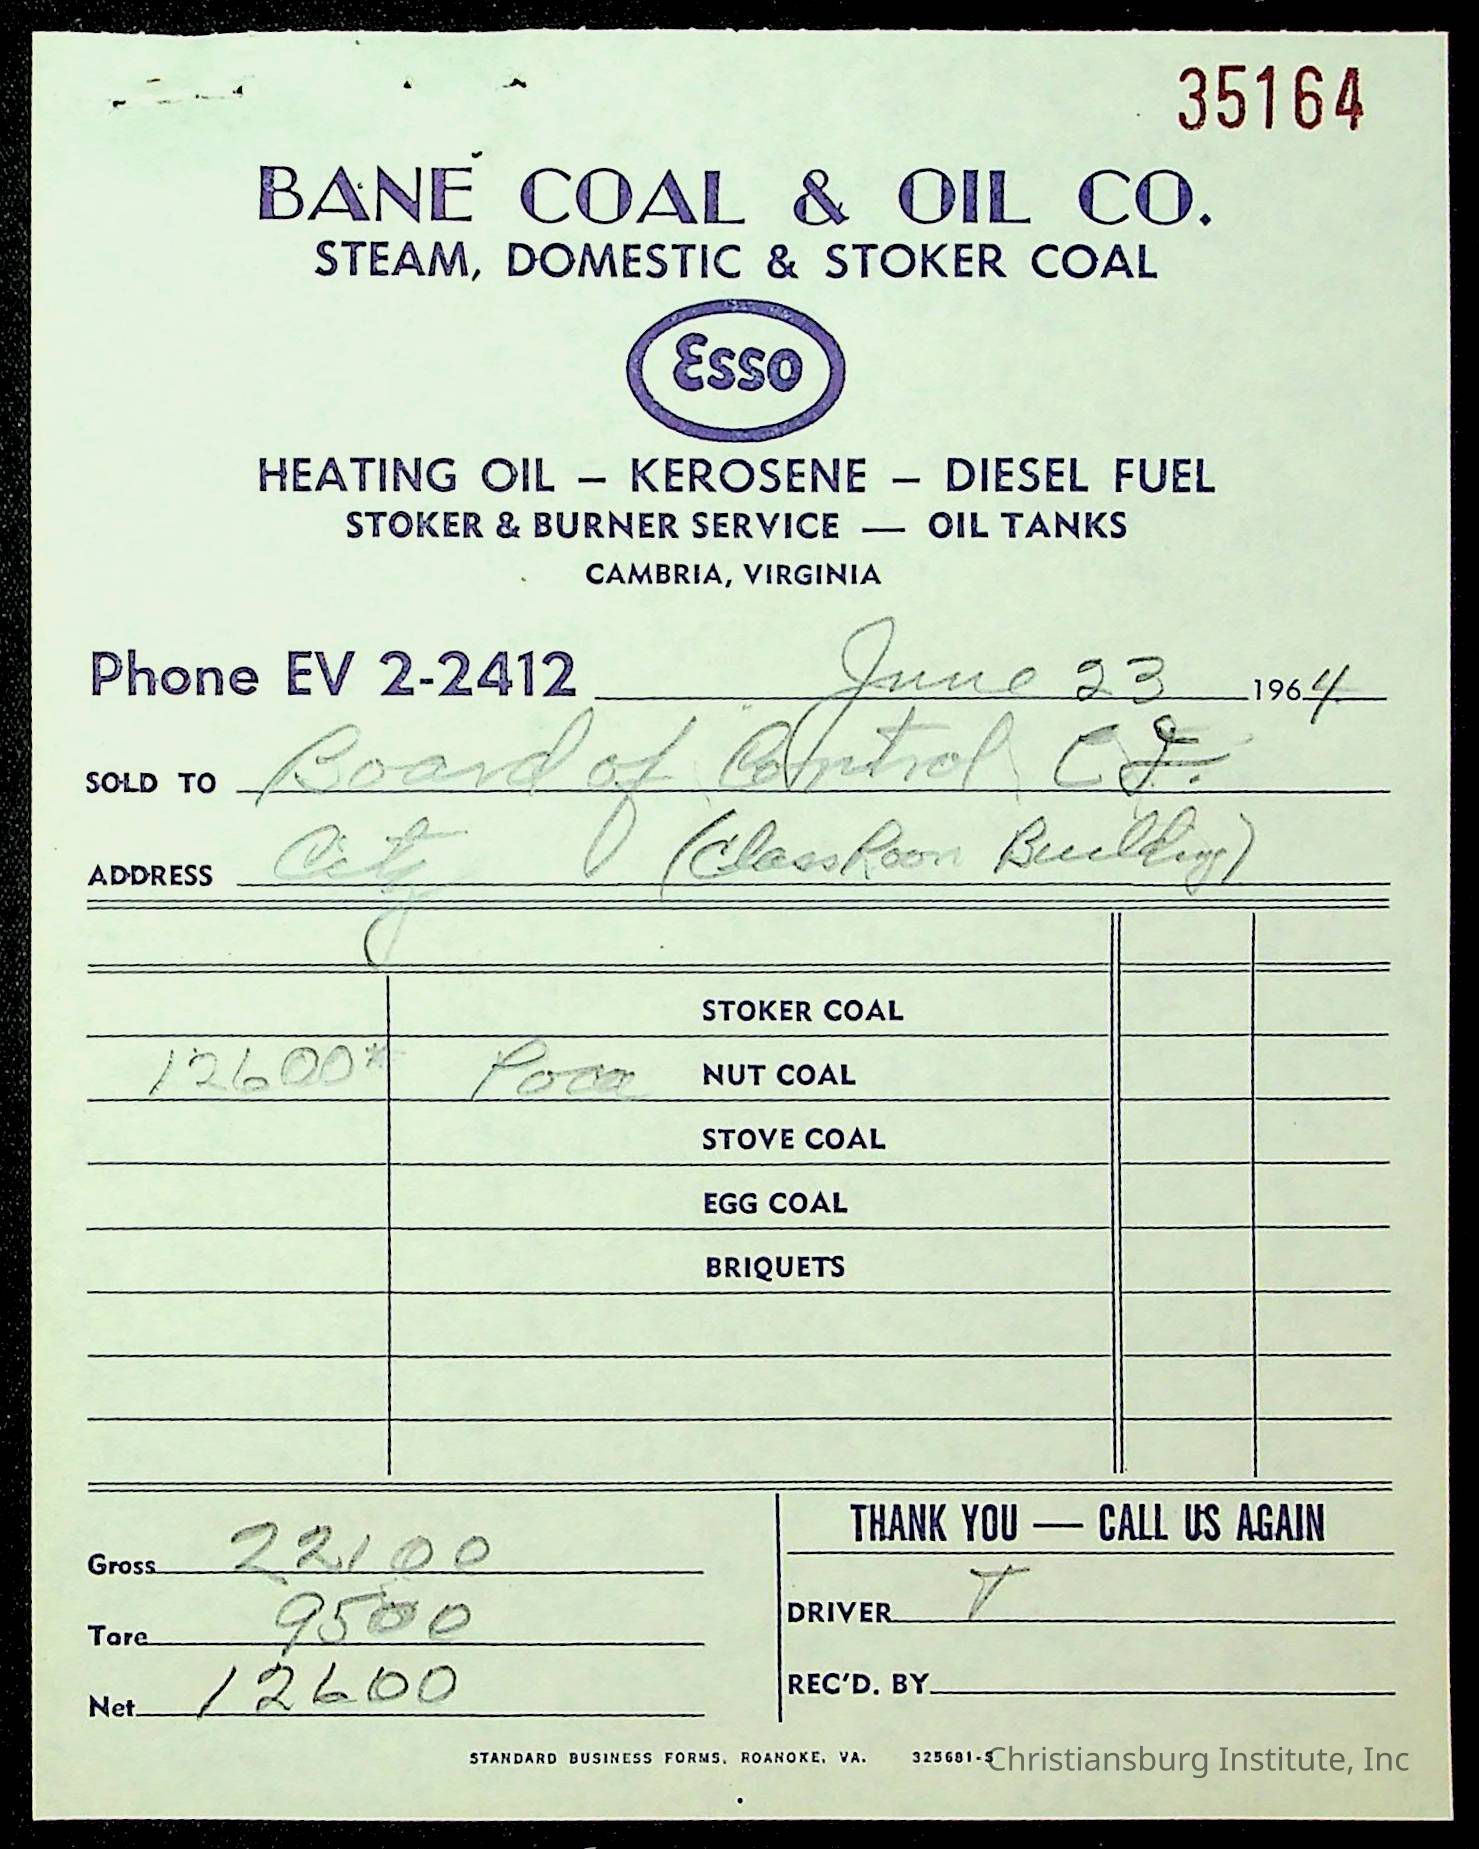 35164
BANE COAL & OIL CO.
STEAM, DOMESTIC & STOKER COAL
Esso
HEATING OIL – KEROSENE – DIESEL FUEL
STOKER & BURNER SERVICE — OIL TANKS
CAMBRIA, VIRGINIA
Phone EV 2-2412 June 23 1964
SOLD TO Board of Control C I.
ADDRESS City (Class Room Building)
STOKER COAL
12600# Poca NUT COAL
STOVE COAL
EGG COAL
BRIQUETS
Gross 22100
Tare 9500
Net 12600
THANK YOU — CALL US AGAIN
DRIVER T
REC'D. BY
STANDARD BUSINESS FORMS, ROANOKE, VA. 325681-S
Christiansburg Institute, Inc